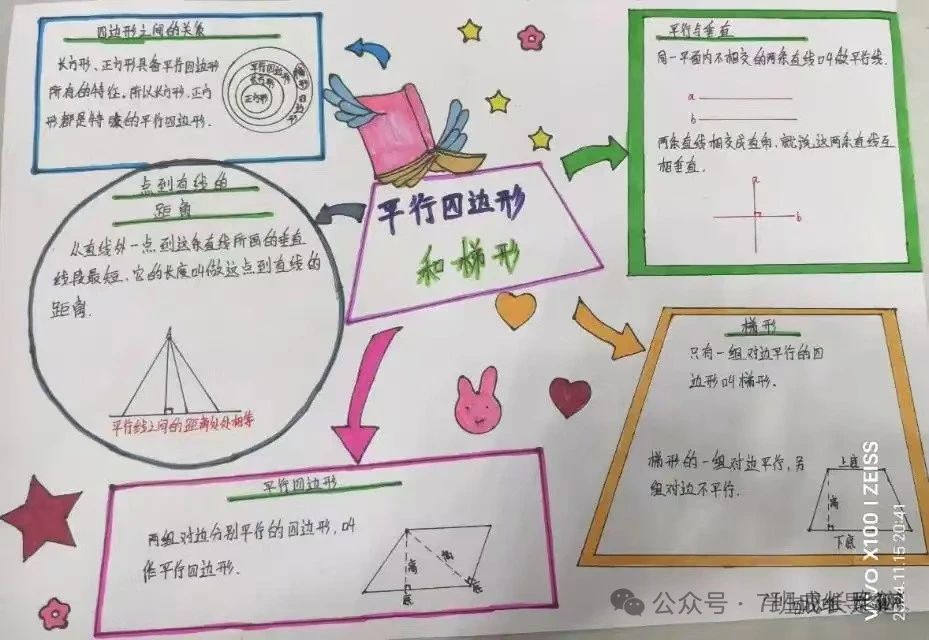 四边形之间的关系
长方形、正方形具备平行四边形
所有的特征,所以长方形、正方
形都是特殊的平行四边形.
平行四边形
长方形
正方形
梯形
四边形
平行四边形
和梯形
平行与垂直
同一平面内不相交的两条直线叫做平行线.
a
b
两条直线相交成直角,就说这两条直线互
相垂直.
a
b
点到直线的
距离
从直线外一点到这条直线所画的垂直
线段最短,它的长度叫做这点到直线的
距离.
平行线之间的距离处处相等
梯形
只有一组对边平行的四
边形叫梯形.
梯形的一组对边平行,另
组对边不平行.
上底
高
下底
平行四边形
两组对边分别平行的四边形,叫
作平行四边形.
高
高
底
底
公众号·7
vivo X100 | ZEISS
2024.11.15 20:41